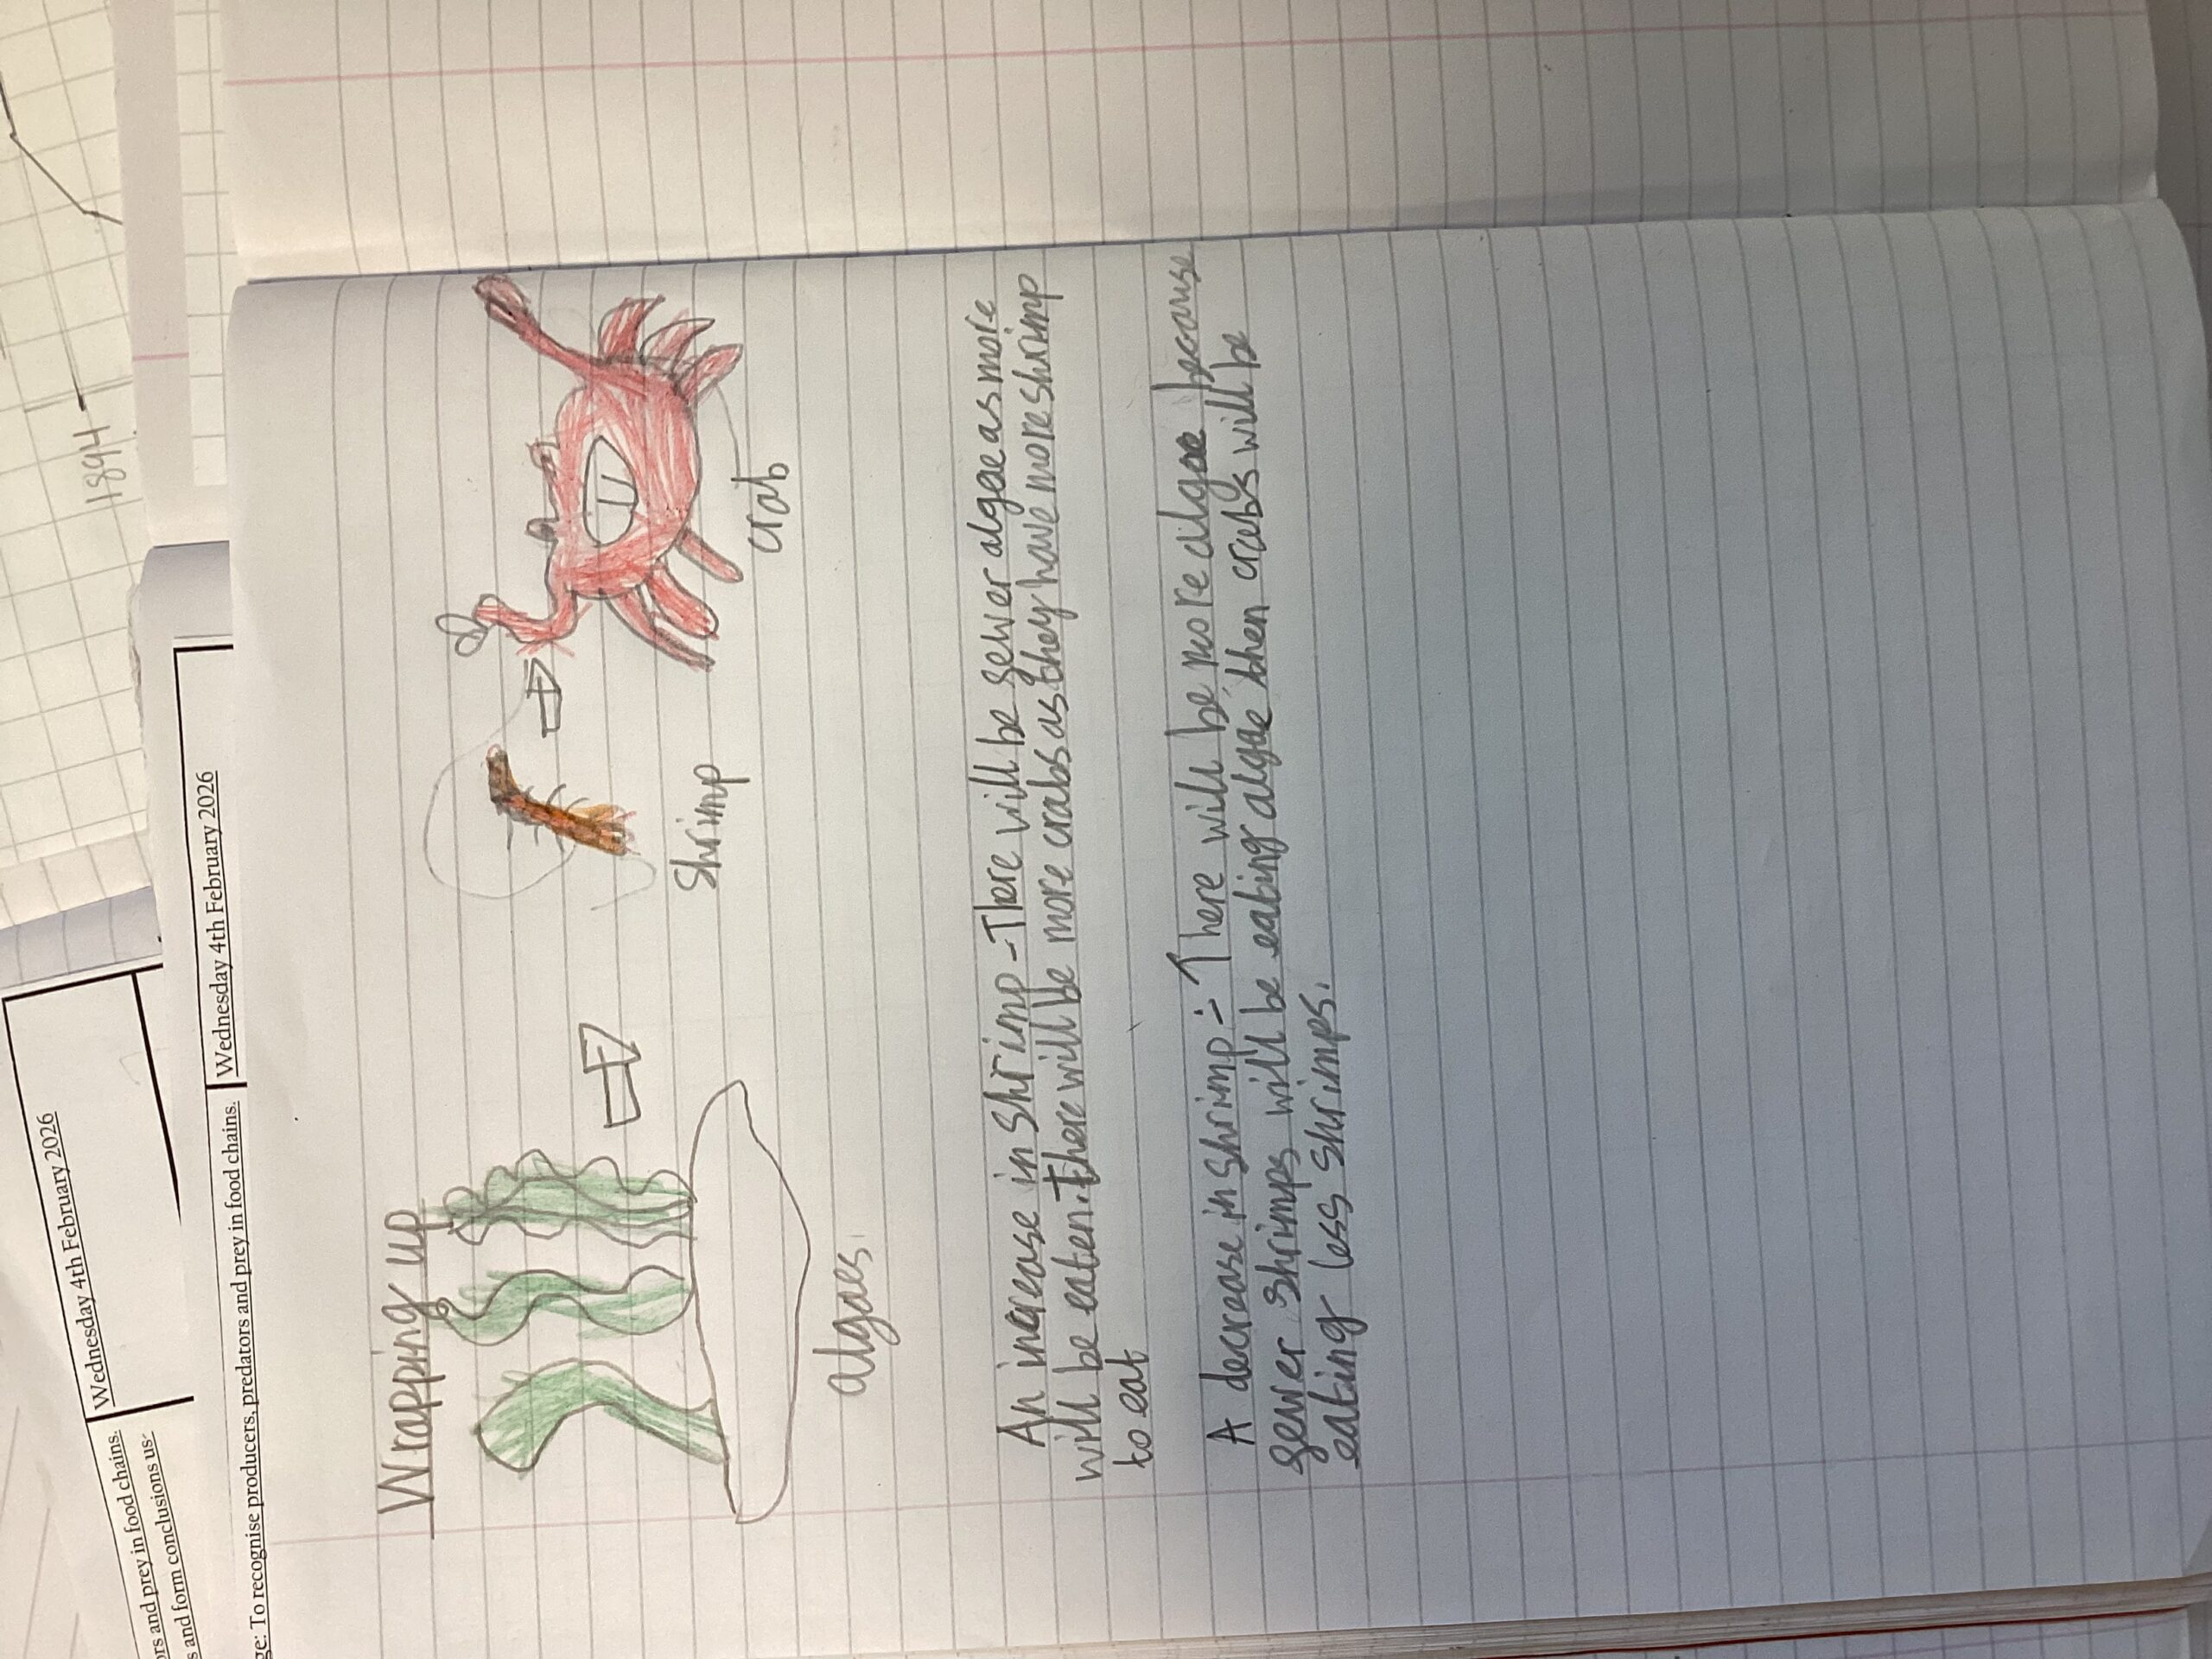 1894
Wednesday 4th February 2026
ors and prey in food chains.
s and form conclusions us
Wednesday 4th February 2026
ge: To recognise producers, predators and prey in food chains.
Wrapping up
algaes
Shrimp
crab
An increase in Shrimp - There will be fewer algae as more
will be eaten. There will be more crabs as they have more shrimp
to eat
A decrease in shrimp - There will be more algae because
fewer shrimps will be eating algae then crabs will be
eating less shrimps.